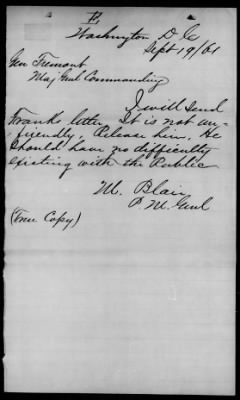 Washington D C
Sept 19/61
Gen Fremont
Maj Genl Commanding
I will send
Franks letter. It is not un-
friendly. Release him. He
should have no difficulty
existing with the Public
M. Blair
P M. Genl
(True Copy)